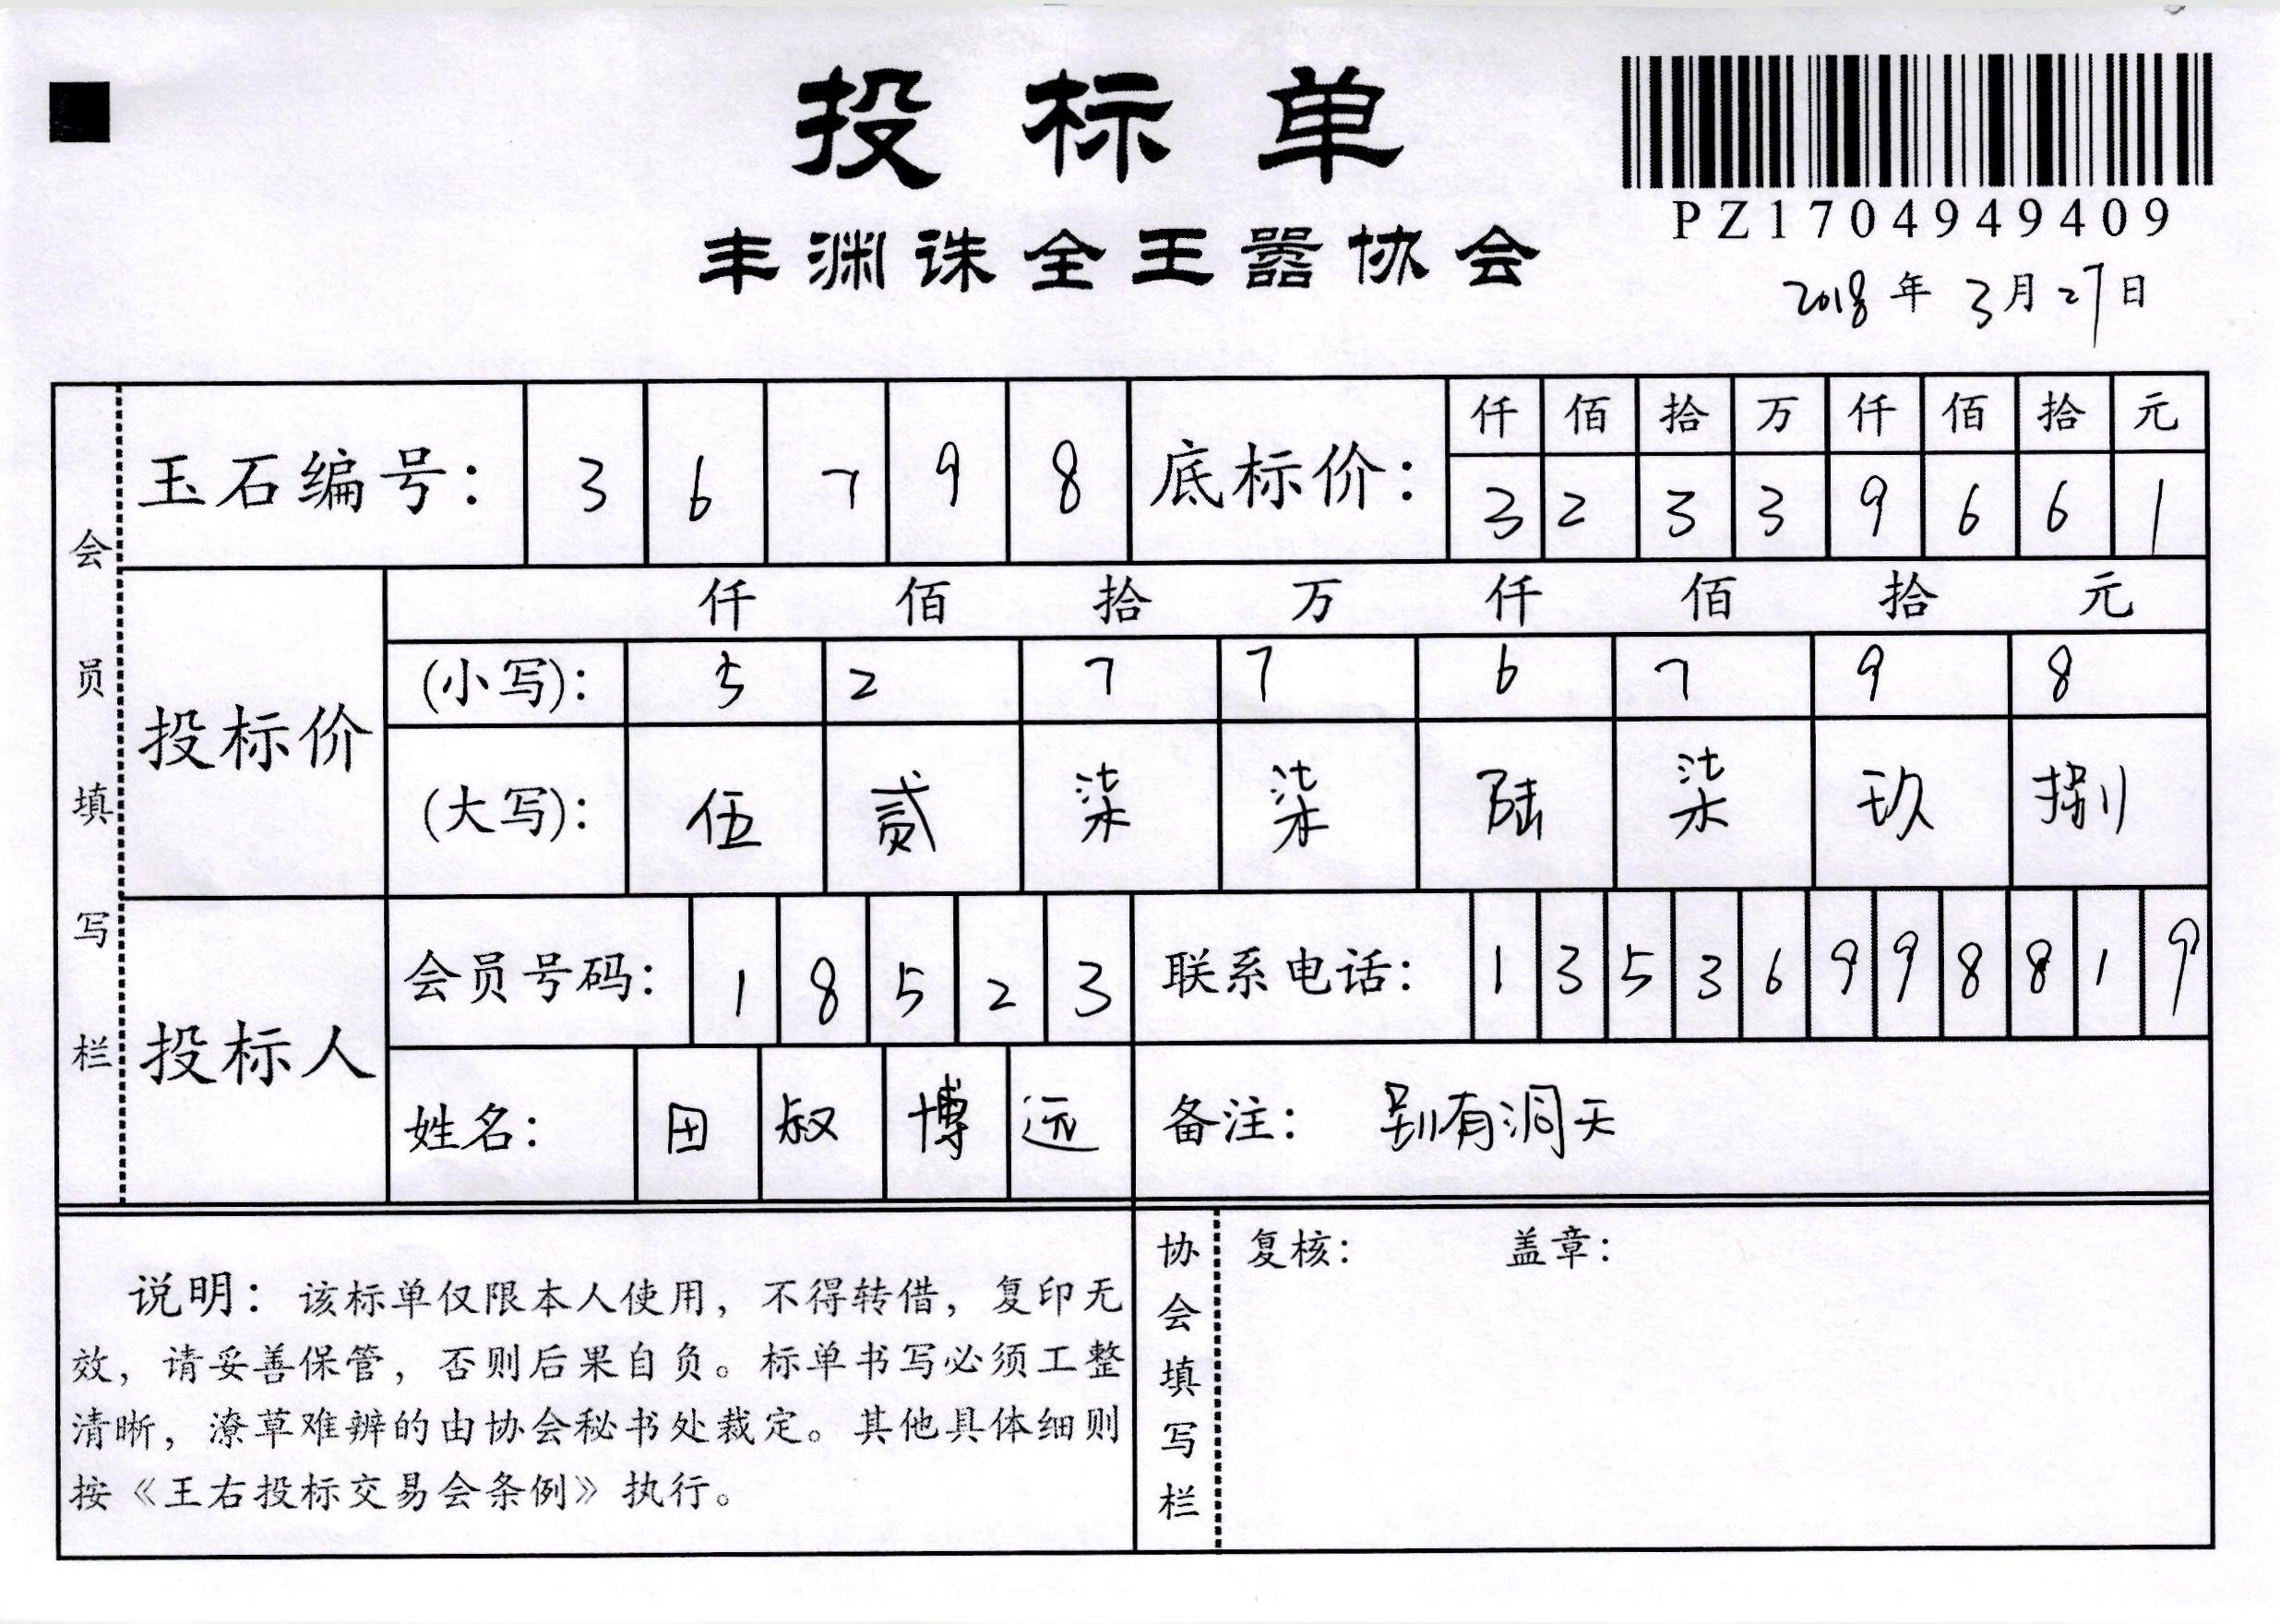 投标单
PZ1704949409
丰渊诛全王嚣协会
2018年3月27日
会员填写栏
玉石编号: 3 6 7 9 8
底标价: 仟 佰 拾 万 仟 佰 拾 元
3 2 3 3 9 6 6 1
投标价
仟 佰 拾 万 仟 佰 拾 元
(小写): 5 2 7 7 6 7 9 8
(大写): 伍 贰 柒 柒 陆 柒 玖 捌
投标人
会员号码: 1 8 5 2 3
联系电话: 1 3 5 3 6 9 9 8 8 1 9
姓名: 田 叔 博 远
备注: 别有洞天
说明: 该标单仅限本人使用, 不得转借, 复印无
效, 请妥善保管, 否则后果自负。标单书写必须工整
清晰, 潦草难辨的由协会秘书处裁定。其他具体细则
按《王右投标交易会条例》执行。
协会填写栏
复核: 盖章: